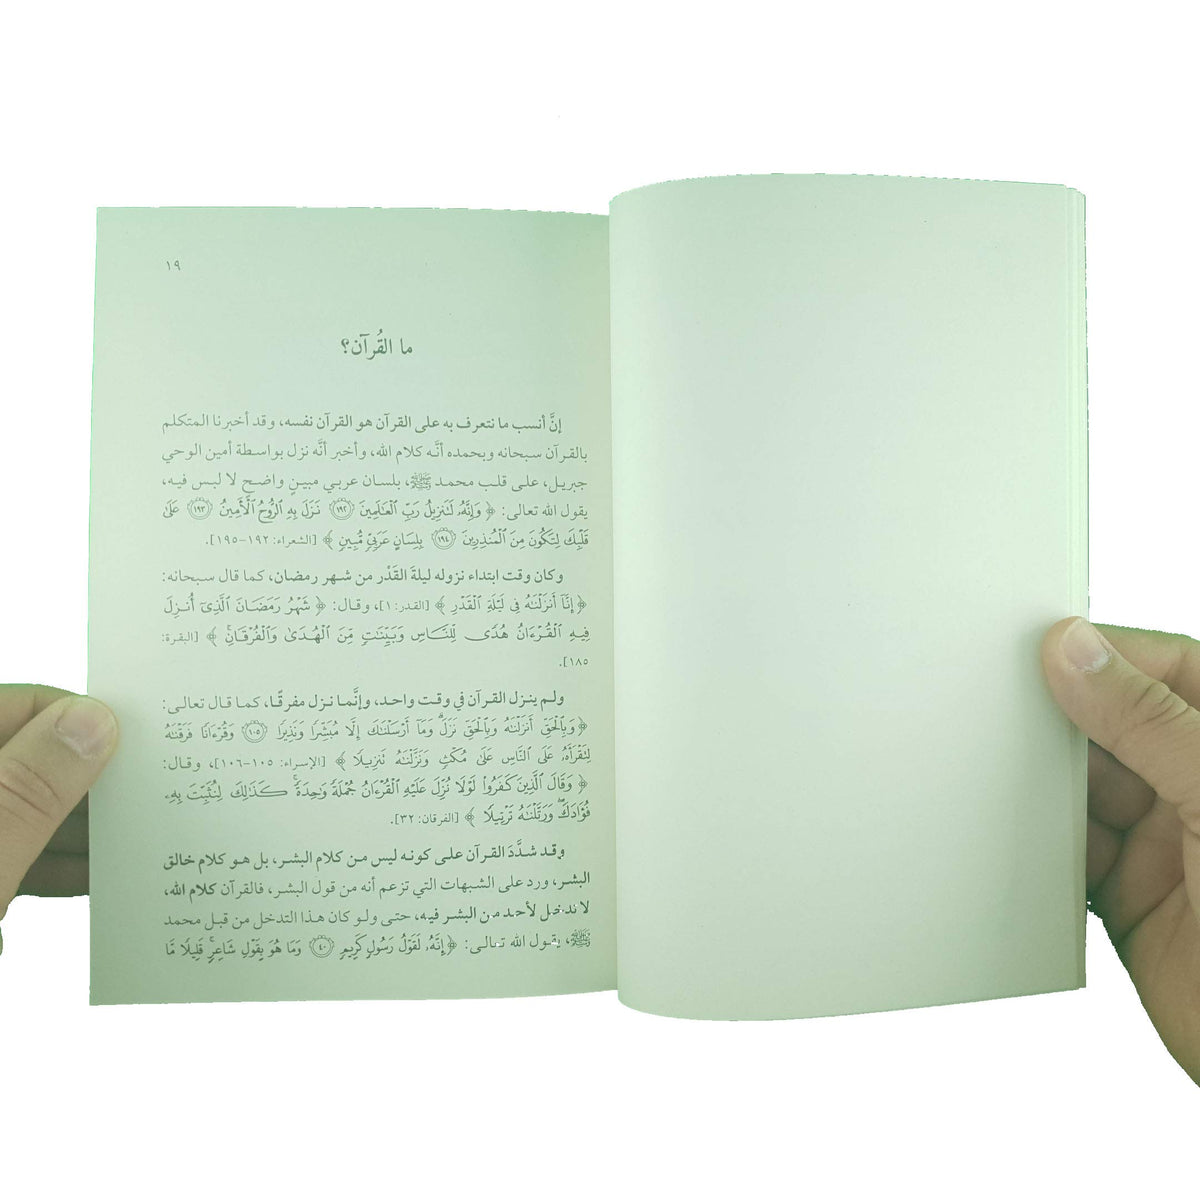 ١٩
ما القُرآن؟
إنَّ أنسب ما نتعرف به على القرآن هو القرآن نفسه، وقد أخبرنا المتكلم
بالقرآن سبحانه وبحمده أنَّه كلام الله، وأخبر أنَّه نزل بواسطة أمين الوحي
جبريل، على قلب محمد ﷺ، بلسان عربي مبينٍ واضح لا لبس فيه،
يقول الله تعالى: ﴿ وَإِنَّهُۥ لَتَنزِيلُ رَبِّ ٱلۡعَٰلَمِينَ ١٩٢ نَزَلَ بِهِ ٱلرُّوحُ ٱلۡأَمِينُ ١٩٣ عَلَىٰ
قَلۡبِكَ لِتَكُونَ مِنَ ٱلۡمُنذِرِينَ ١٩٤ بِلِسَانٍ عَرَبِيّٖ مُّبِينٖ ﴾ [الشعراء: ١٩٢-١٩٥].
وكان وقت ابتداء نزوله ليلةَ القَدْر من شهر رمضان، كما قال سبحانه:
﴿ إِنَّآ أَنزَلۡنَٰهُ فِي لَيۡلَةِ ٱلۡقَدۡرِ ﴾ [القدر: ١]، وقال: ﴿ شَهۡرُ رَمَضَانَ ٱلَّذِيٓ أُنزِلَ
فِيهِ ٱلۡقُرۡءَانُ هُدٗى لِّلنَّاسِ وَبَيِّنَٰتٖ مِّنَ ٱلۡهُدَىٰ وَٱلۡفُرۡقَانِۚ ﴾ [البقرة:
١٨٥].
ولم ينزل القرآن في وقت واحد، وإنَّما نزل مفرقًا، كما قال تعالى:
﴿ وَبِٱلۡحَقِّ أَنزَلۡنَٰهُ وَبِٱلۡحَقِّ نَزَلَۗ وَمَآ أَرۡسَلۡنَٰكَ إِلَّا مُبَشِّرٗا وَنَذِيرٗا ١٠٥ وَقُرۡءَانٗا فَرَقۡنَٰهُ
لِتَقۡرَأَهُۥ عَلَى ٱلنَّاسِ عَلَىٰ مُكۡثٖ وَنَزَّلۡنَٰهُ تَنزِيلٗا ﴾ [الإسراء: ١٠٥-١٠٦]، وقال:
﴿ وَقَالَ ٱلَّذِينَ كَفَرُواْ لَوۡلَا نُزِّلَ عَلَيۡهِ ٱلۡقُرۡءَانُ جُمۡلَةٗ وَٰحِدَةٗۚ كَذَٰلِكَ لِنُثَبِّتَ بِهِۦ
فُؤَادَكَۖ وَرَتَّلۡنَٰهُ تَرۡتِيلٗا ﴾ [الفرقان: ٣٢].
وقد شدَّدَ القرآن على كونه ليس من كلام البشر، بل هو كلام خالق
البشر، ورد على الشبهات التي تزعم أنه من قول البشر، فالقرآن كلام الله،
لا تدخل لأحد من البشر فيه، حتى ولو كان هذا التدخل من قبل محمد
ﷺ، يقول الله تعالى: ﴿ إِنَّهُۥ لَقَوۡلُ رَسُولٖ كَرِيمٖ ٤٠ وَمَا هُوَ بِقَوۡلِ شَاعِرٖۚ قَلِيلٗا مَّا